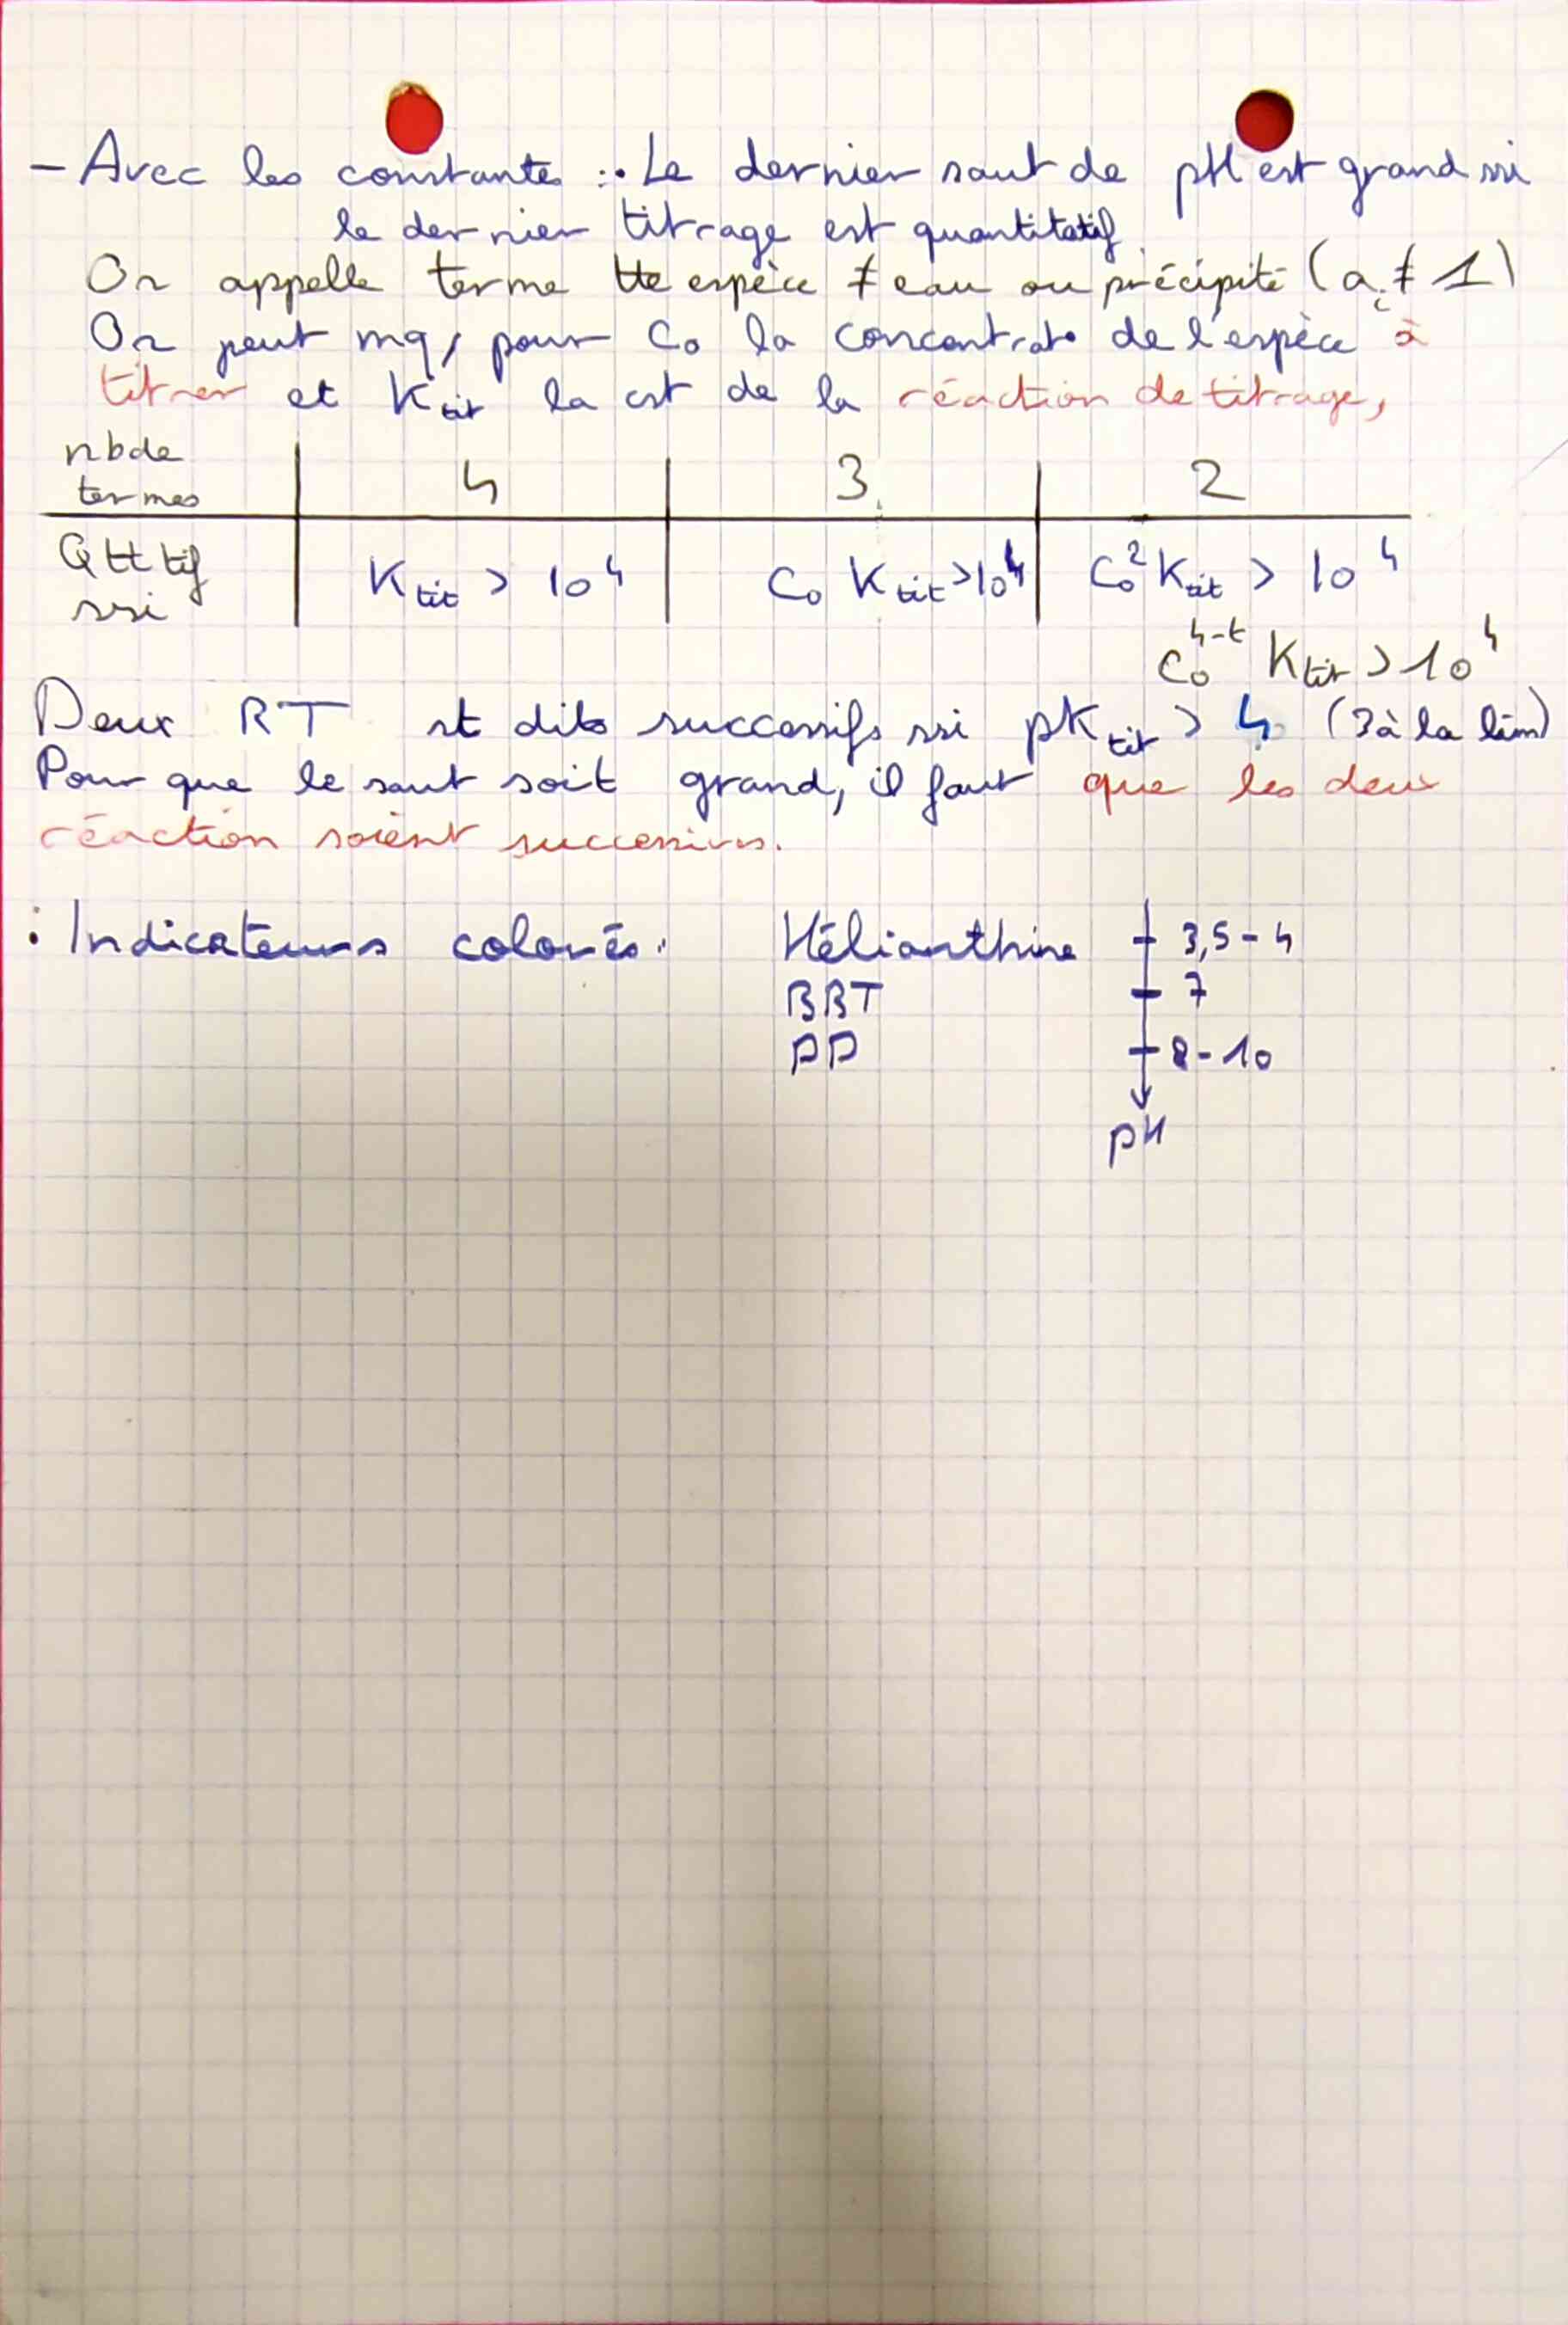 - Avec les constantes : • Le dernier saut de pH est grand ssi
le dernier titrage est quantitatif.
On appelle terme tte espèce ≠ eau ou précipité (aᵢ ≠ 1)
On peut mq, pour C₀ la concentrat° de l'espèce à
titrer et Ktit la cst de la réaction de titrage,
nb de termes | 4 | 3 | 2
Qtttif ssi | Ktit > 10⁴ | C₀ Ktit > 10⁴ | C₀² Ktit > 10⁴
C₀⁴⁻ᵗ Ktit > 10⁴
Deux RT st dits successifs ssi pKtit > 4 (3 à la lim)
Pour que le saut soit grand, il faut que les deux
réaction soient successives.
: Indicateurs colorés : Hélianthine 3,5 - 4
BBT 7
PP 8 - 10
pH